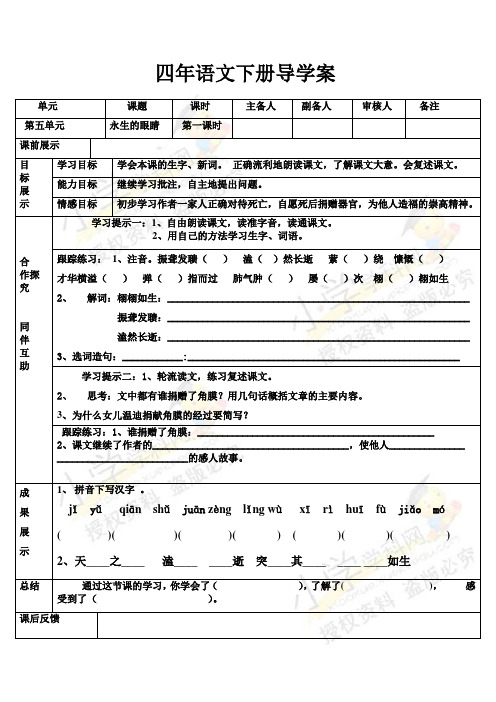 四年语文下册导学案
单元 课题 课时 主备人 副备人 审核人 备注
第五单元 永生的眼睛 第一课时
课前展示
目标展示
学习目标 学会本课的生字、新词。 正确流利地朗读课文，了解课文大意。会复述课文。
能力目标 继续学习批注，自主地提出问题。
情感目标 初步学习作者一家人正确对待死亡，自愿死后捐赠器官，为他人造福的崇高精神。
合作探究
同伴互助
学习提示一：1、自由朗读课文，读准字音，读通课文。
2、用自己的方法学习生字、词语。
跟踪练习： 1、注音。振聋发聩（ ） 溘（ ）然长逝 萦（ ）绕 慷慨（ ）
才华横溢（ ） 弹（ ）指而过 肺气肿（ ） 屡（ ）次 栩（ ）栩如生
2、 解词：栩栩如生：____
振聋发聩：____
溘然长逝：____
3、选词造句：____:____
学习提示二：1、轮流读文，练习复述课文。
2、 思考：文中都有谁捐赠了角膜？用几句话概括文章的主要内容。
3、为什么女儿温迪捐献角膜的经过要简写？
跟踪练习：1、谁捐赠了角膜：____
2、课文继续了作者的____，使他人____
____的感人故事。
成果展示
1、 拼音下写汉字 。
jī yǔ qiān shǔ juān zèng lǐng wù xī rì huī fù jiǎo mó
( )( )( )( ) ( )( )( )
2、天____之____ 溘____ ____逝 突____其____ ____ ____如生
总结 通过这节课的学习，你学会了（ ），了解了( )， 感
受到了（ ）。
课后反馈